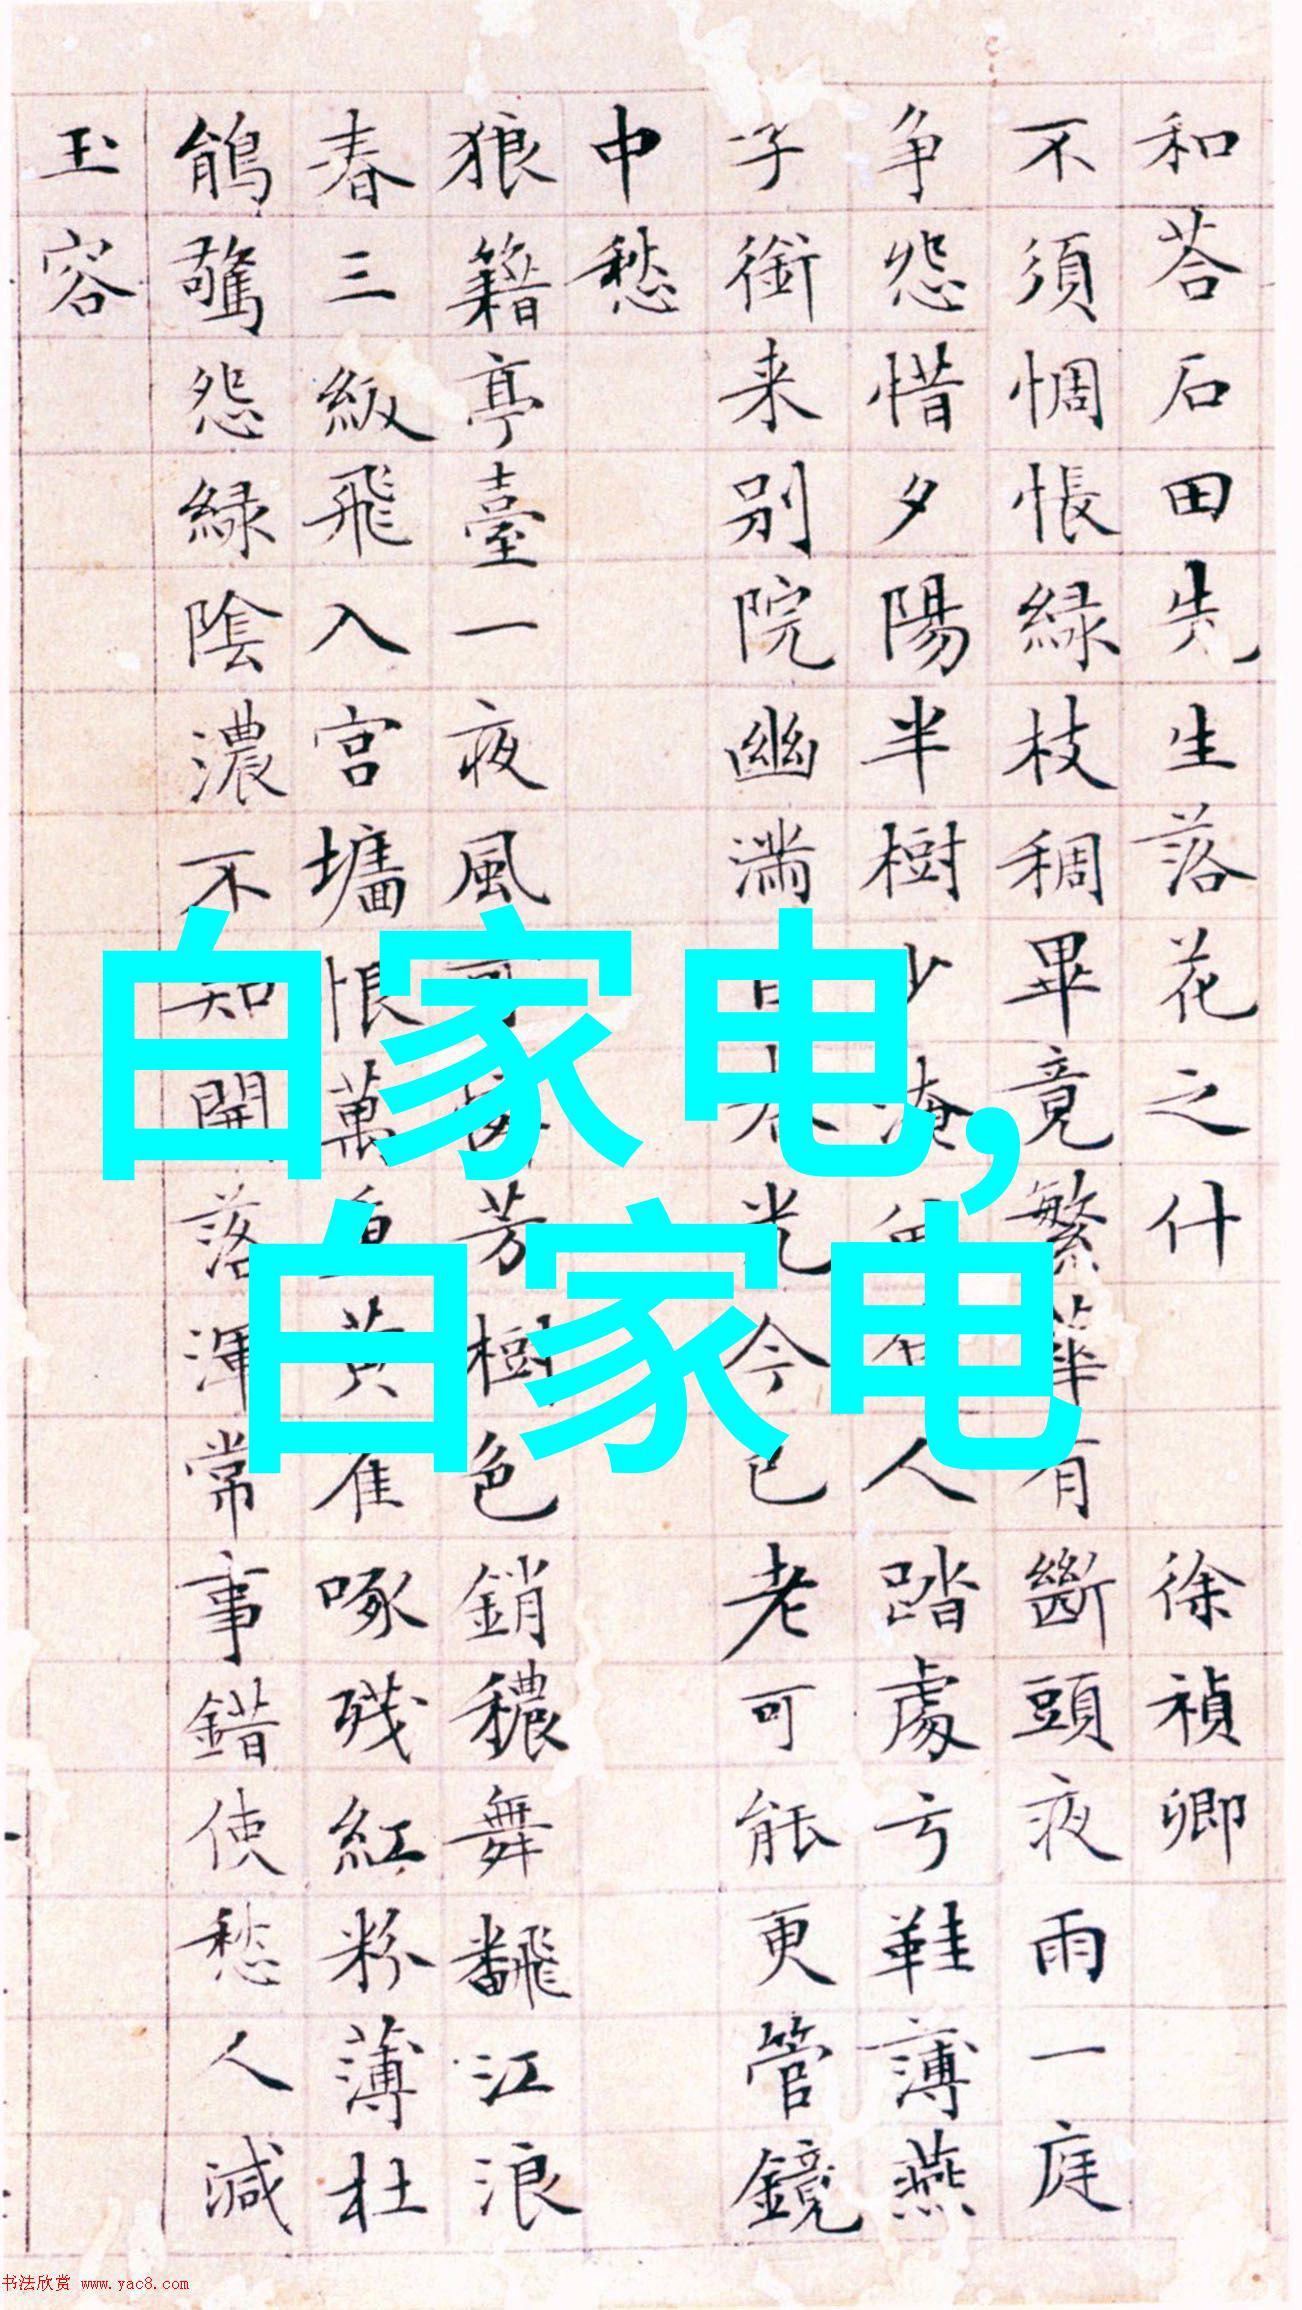 和荅石田先生落花之什 徐禎卿
不須惆悵緑枝稠畢竟繁華有斷頭夜雨一庭
争怨惜夕陽半樹少淹人踏處亏鞋薄燕
子銜来别院幽满春光今已老可能更管鏡
中愁
狼籍亭臺一夜風芳樹色銷穠舞飜江浪
春三級飛入宫墻恨萬重黄雀啄残紅粉薄杜
鵑驚怨緑陰濃不知開落渾常事錯使愁人減
玉容
白家电,
白家电
书法欣赏 www.yac8.com